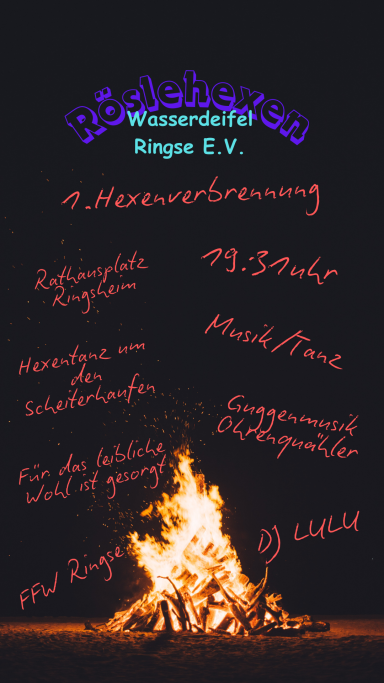 Röslehexen
Wasserdeifel
Ringse E.V.
1.Hexenverbrennung
Rathausplatz
Ringsheim
19:31uhr
Hexentanz um
den
Scheiterhaufen
Musik/Tanz
Guggenmusik
Ohrenquähler
Für das leibliche
Wohl ist gesorgt
FFW Ringse
DJ LULU